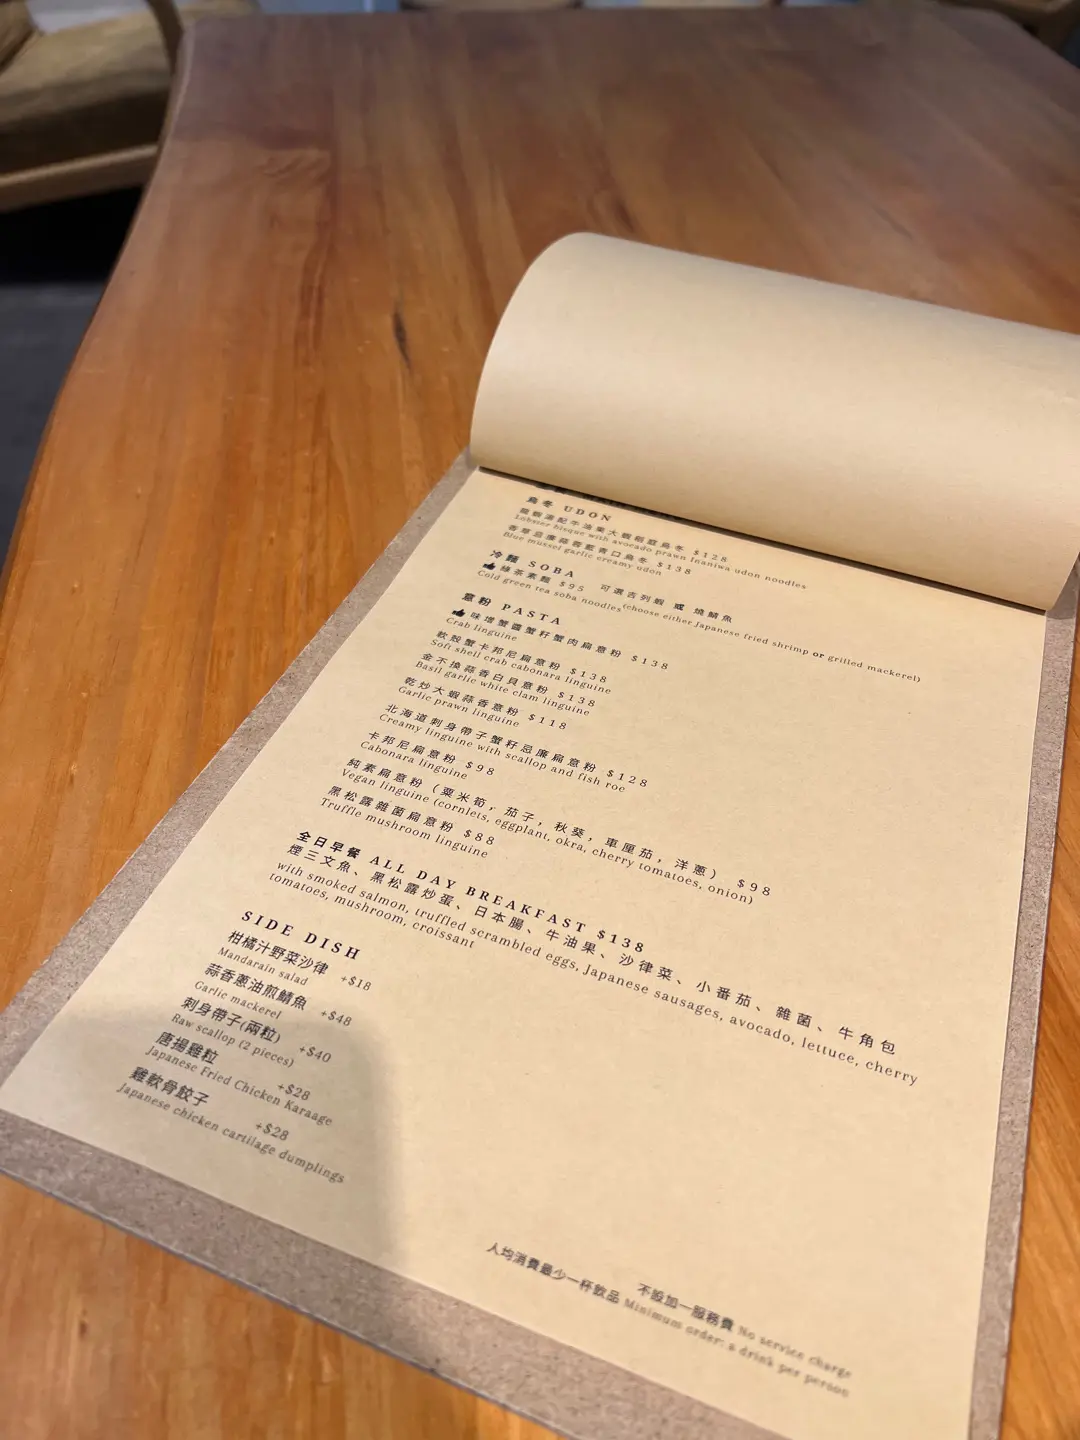 烏冬 UDON
龍蝦湯配牛油果大蝦稻庭烏冬 $128
Lobster bisque with avocado prawn Inaniwa udon noodles
香草忌廉蒜蓉藍青口烏冬 $138
Blue mussel garlic creamy udon
冷麵 SOBA
綠茶素麵 $95 可選吉列蝦 或 燒鯖魚
Cold green tea soba noodles (choose either Japanese fried shrimp or grilled mackerel)
意粉 PASTA
味增蟹醬蟹籽蟹肉扁意粉 $138
Crab linguine
軟殼蟹卡邦尼扁意粉 $138
Soft shell crab cabonara linguine
金不換蒜香白貝意粉 $138
Basil garlic white clam linguine
乾炒大蝦蒜香意粉 $118
Garlic prawn linguine
北海道刺身帶子蟹籽忌廉扁意粉 $128
Creamy linguine with scallop and fish roe
卡邦尼扁意粉 $98
Cabonara linguine
純素扁意粉（粟米筍，茄子，秋葵，車厘茄，洋蔥） $98
Vegan linguine (cornlets, eggplant, okra, cherry tomatoes, onion)
黑松露雜菌扁意粉 $88
Truffle mushroom linguine
全日早餐 ALL DAY BREAKFAST $138
煙三文魚、黑松露炒蛋、日本腸、牛油果、沙律菜、小番茄、雜菌、牛角包
with smoked salmon, truffled scrambled eggs, Japanese sausages, avocado, lettuce, cherry
tomatoes, mushroom, croissant
SIDE DISH
柑橘汁野菜沙律 +$18
Mandarain salad
蒜香蔥油煎鯖魚 +$48
Garlic mackerel
刺身帶子(兩粒) +$40
Raw scallop (2 pieces)
唐揚雞粒 +$28
Japanese Fried Chicken Karaage
雞軟骨餃子 +$28
Japanese chicken cartilage dumplings
不設加一服務費 No service charge
人均消費最少一杯飲品 Minimum order: a drink per person